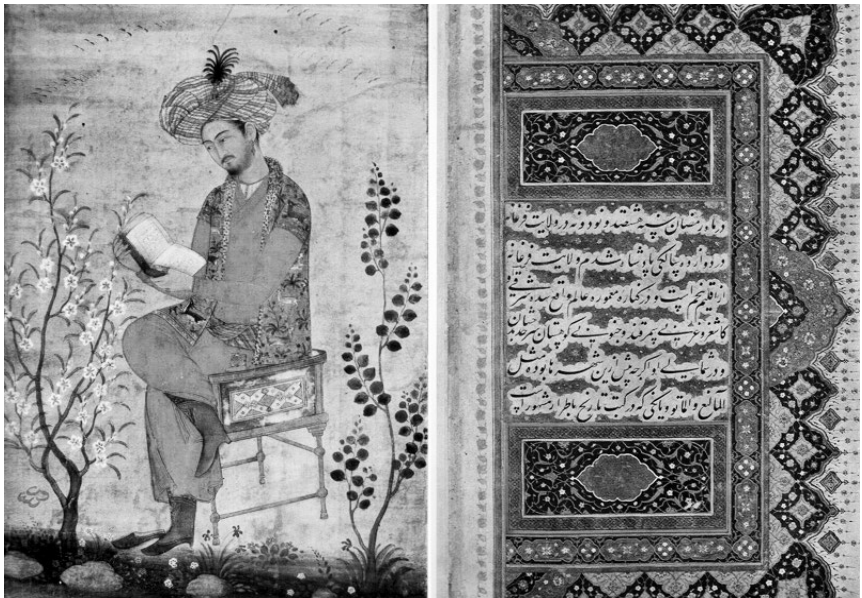 در ماه رمضان سنه هشتصد و نود و نه در ولایت فرغانه
در دوازده سالکی پادشاه شدم ولایت فرغانه
از اقلیم پنجم است و در کناره معموره عالم واقع شده شرقی او
کاشغر و غربی سمرقند و جنوبی کوهستان سرحد بدخشان
و در شمالی او اکرچه پیش ازین شهرها بوده مثل
المالغ و الماتو و ینکی که در کتب تاریخ باطرار مشهور است